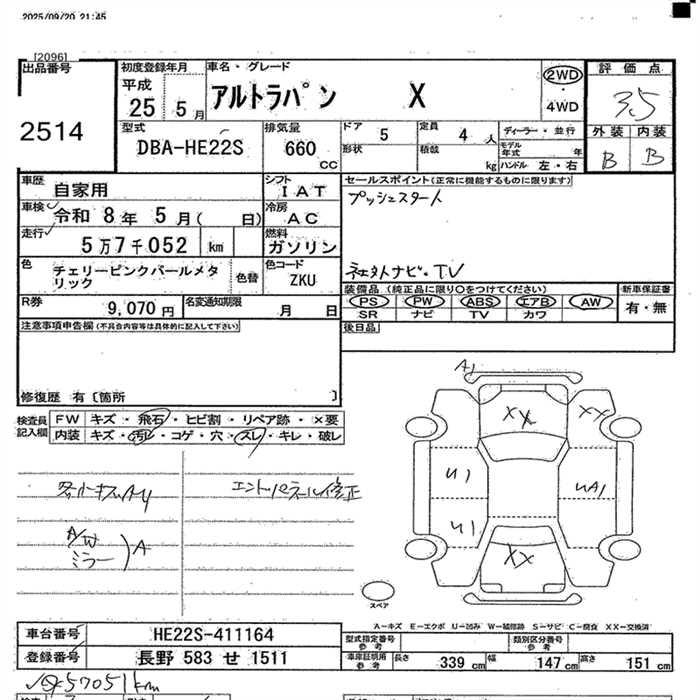 2025/09/20 21:45
[2096]
出品番号
2514
初度登録年月
平成
25 5月
車名・グレード
アルトラパン X
2WD
4WD
評価点
3.5
外装 内装
B B
型式
DBA-HE22S
排気量
660
CC
ドア 5
形状
定員 4 人
積載 kg
ディーラー・並行
モデル年式 年
ハンドル 左・右
車歴 自家用
シフト IAT
車検 令和 8年 5月( 日)
冷房 AC
走行 5万7千052 km
燃料 ガソリン
色 チェリーピンクパールメタリック
色替
色コード ZKU
R券 9,070円
名変通知期限 月 日
セールスポイント(正常に機能するものに限ります)
プッシュスタート
社外ナビ・TV
装備品 (純正品に限り○をつけてください)
PS PW ABS エアB AW
SR ナビ TV カワ
新車保証書
有・無
後日品
注意事項申告欄(不具合内容等は具体的に記入して下さい)
修復歴 有〔箇所 〕
検査員記入欄
FW キズ・飛石・ヒビ割・リペア跡・×要
内装 キズ・汚レ・コゲ・穴・スレ・キレ・破レ
エンドパネル修正
A/W
ミラー
)A
A1
XX
XX
U1
UA1
U1
XX
スペア
A−キズ E−エクボ U−凹み W−補修跡 S−サビ C−腐食 XX−交換済
車台番号 HE22S-411164
登録番号 長野 583 せ 1511
型式指定番号 参考
類別区分番号 参考
車庫証明用 参考
長さ 339 cm 幅 147 cm 高さ 151 cm
57051km